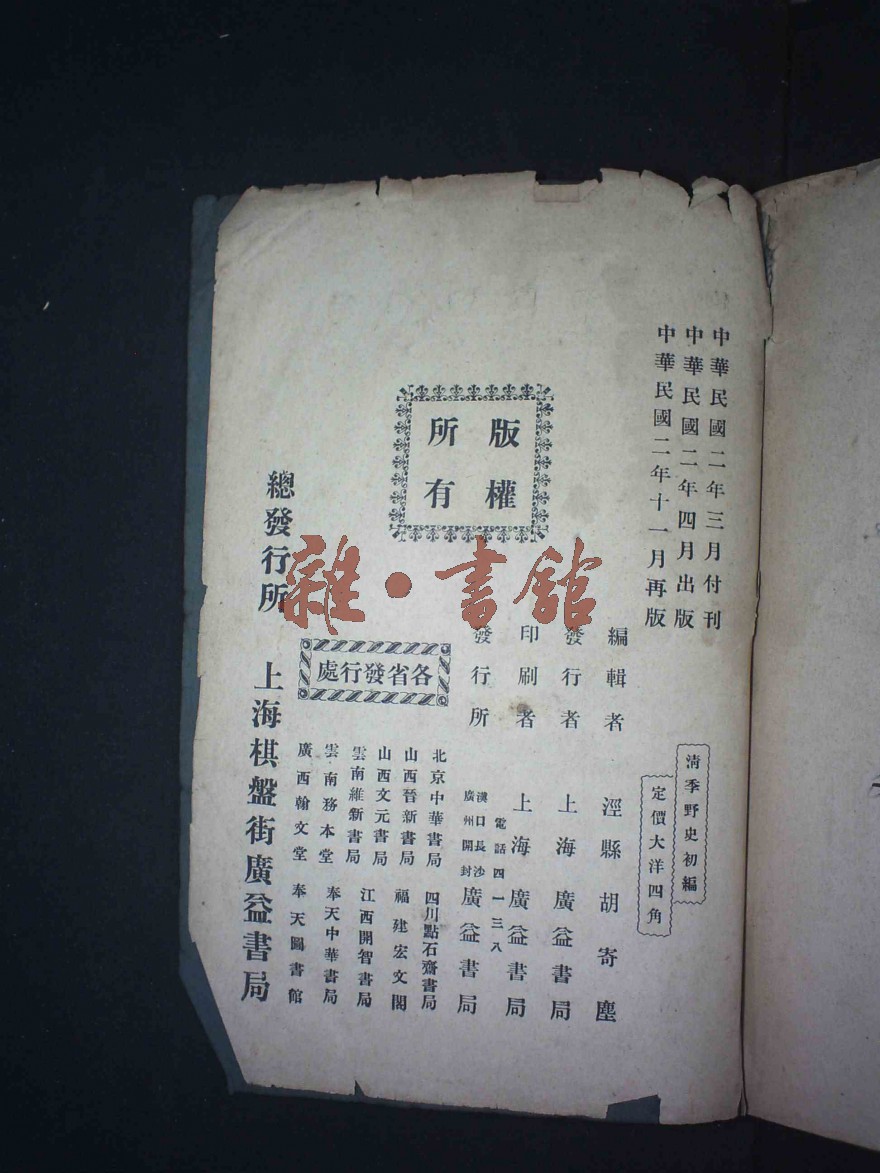 中華民國二年三月付刊
中華民國二年四月出版
中華民國二年十一月再版
清季野史初編
定價大洋四角
版權
所有
編輯者 涇縣胡寄塵
發行者 上海廣益書局
印刷者 上海廣益書局
電話四一三八
發行所 漢口長沙廣州開封廣益書局
各省發行處
北京中華書局 四川點石齋書局
山西晉新書局 福建宏文閣
山西文元書局 江西開智書局
雲南維新書局 奉天中華書局
雲南務本堂 奉天圖書館
廣西翰文堂
總發行所 上海棋盤街廣益書局
雜·書館